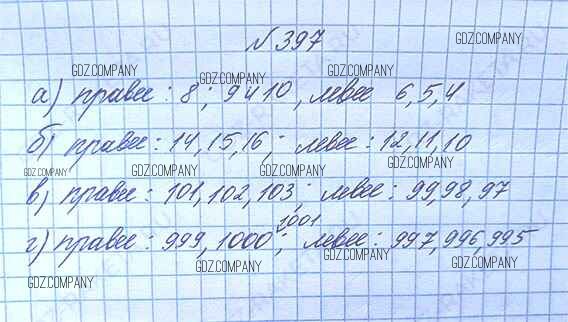 №397
GDZ.COMPANY
GDZ.COMPANY GDZ.COMPANY GDZ.COMPANY
а) правее: 8; 9 и 10, левее 6,5,4
б) правее: 14, 15, 16; левее: 12, 11, 10
GDZ.COMPANY GDZ.COMPANY GDZ.COMPANY GDZ.COMPANY
в) правее: 101, 102, 103; левее: 99, 98, 97
1001
г) правее: 999, 1000; левее: 997, 996, 995
GDZ.COMPANY GDZ.COMPANY GDZ.COMPANY